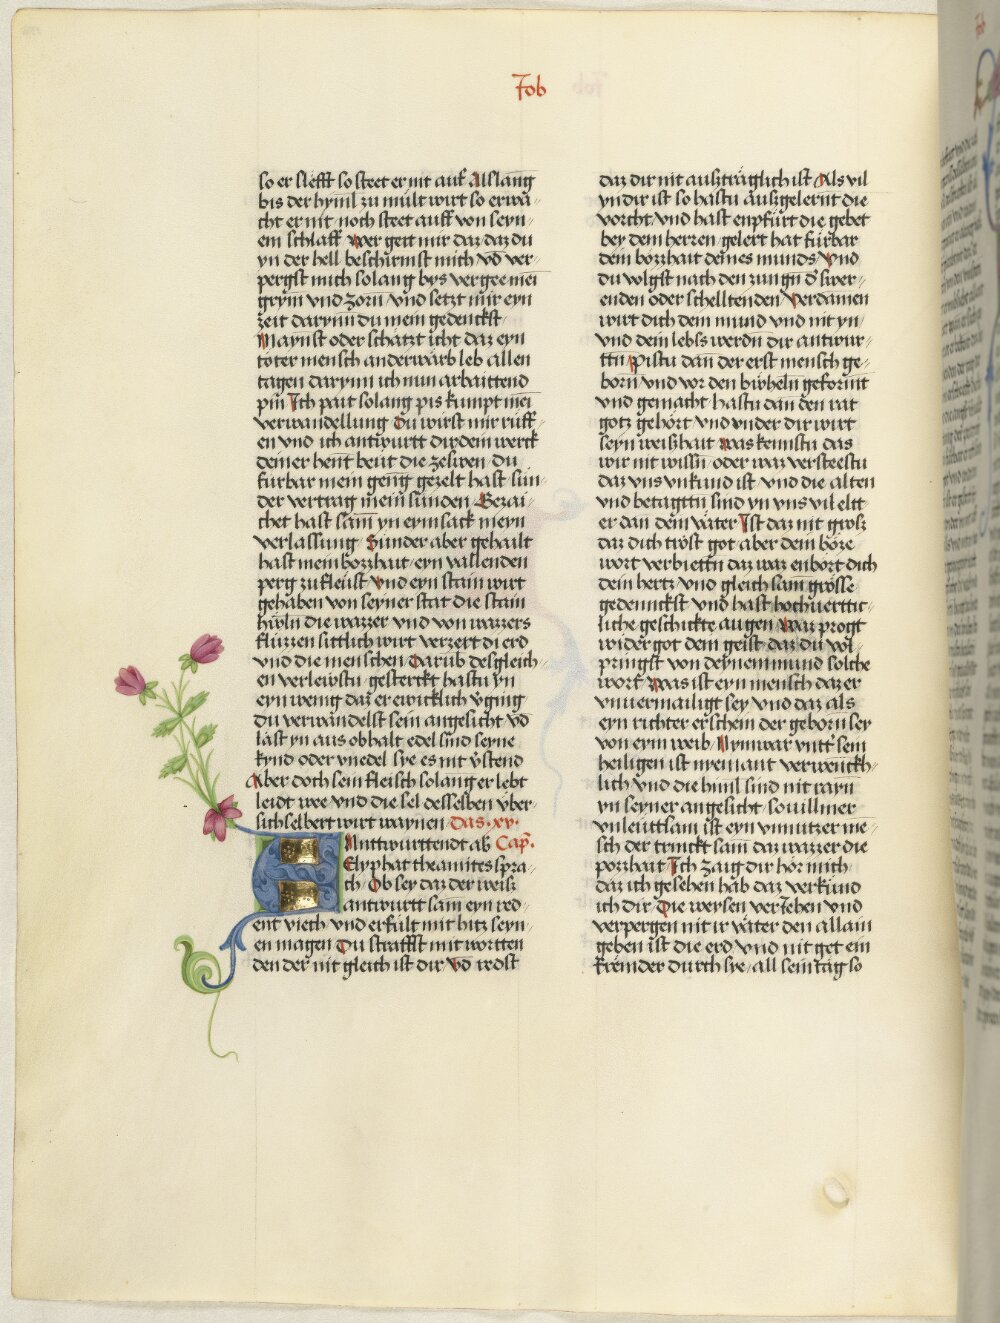 Job
so er slefft so steet er nit auf Alslang
bis der hyml zu mült wirt so erwa-
cht er nit noch steet auff von seyn-
em schlaff Wer geit mir daz daz du
yn der hell beschirmst mich vd ver-
pergst mich solang bys vergee mei
grym vnd zorn vnd setzt mir eyn
zeit darynn du mein gedenckst
Maynst oder schätzt icht daz eyn
toter mensch anderwärb leb allen
tagen darynn ich nun arbaittend
pin Ich pait solang pis kumpt mei
verwandellung Du wirst mir rüff-
en vnd ich antwurtt dir dem werck
deiner hent beüt die zeswen du
fürbar mein geng gezelt hast sun-
der vertrag mein sünden Bezai-
chet hast sam yn eym sack meyn
verlassung Sunder aber gehailt
hast mein bozzhait eyn vallenden
perg zufleüst vnd eyn stain wirt
gehaben von seyner stat die stain
hüoln die wazzer vnd von wazzers
flüzzen sittlich wirt verzert di erd
vnd die menschen Darüb desgleich-
en verlewstu gesterckt hastu yn
eyn wenig daz er ewicklich vging
du verwandelst sein angesicht vd
läst yn aus ob halt edel sind seyne
kynd oder vnedel sye es nit vstend
Aber doch sein fleisch solang er lebt
leidt wee vnd die sel desselben über-
sich selbert wirt waynen das .xv.
Anttwürttendt ab Cap.
Elyphat theamites spra-
ch Ob sey daz der weis
antwurtt sam eyn red-
ent viech vnd erfült mit hitz seyn-
en magen Du straffst mit wortten
den der nit gleich ist dir vd redst
daz dir nit auszträglich ist Als vil
yn dir ist so hastu auszgelernt die
vorcht vnd hast enpfürt die gebet
bey dem herren gelert hat fürbar
dein bozzhait deines munds vnd
du volgst nach den zungn d swer-
enden oder schelltenden Verdamen
wirt dich dein mund vnd nit yn
vnd dein lebss werdn dir antwur-
ttn Pistu dan der erst mensch ge-
born vnd vor den bühelln geformt
vnd gemacht hastu dan den rat
gotz gehört vnd vnder dir wirt
seyn weiszhait was kennstu das
wir nit wissn oder waz versteestu
daz vns vnkund ist vnd die alten
vnd betagttn sind yn vns vil eltt
er dan dein väter Ist daz nit grosz
daz dich tröst got aber dein böze
wort verbiettn daz waz enbört dich
dein hertz vnd gleich sam grösse
gedennckst vnd hast hochuerttic-
liche geschickte augen Waz progt
wider got dein geist daz du vol
pringst von deynem mund solche
wort Was ist eyn mensch daz er
vnuermailigt sey vnd daz als
eyn richter erschein der geborn sey
von eym weib Nym war vntt sein
heiligen ist nyemant verwenckh-
lich vnd die himl sind nit rayn
yn seyner angesicht so vil mer
vnleüttsam ist eyn vnnutzer me-
sch der trinckt sam daz wazzer die
pozzhait Ich zaig dir hör mich
daz ich gesehen hab daz verkünd
ich dir Die weysen veriehen vnd
verpergen nit ir väter den allain
geben ist die erd vnd nit get ein
främder durch sye all sein täg so